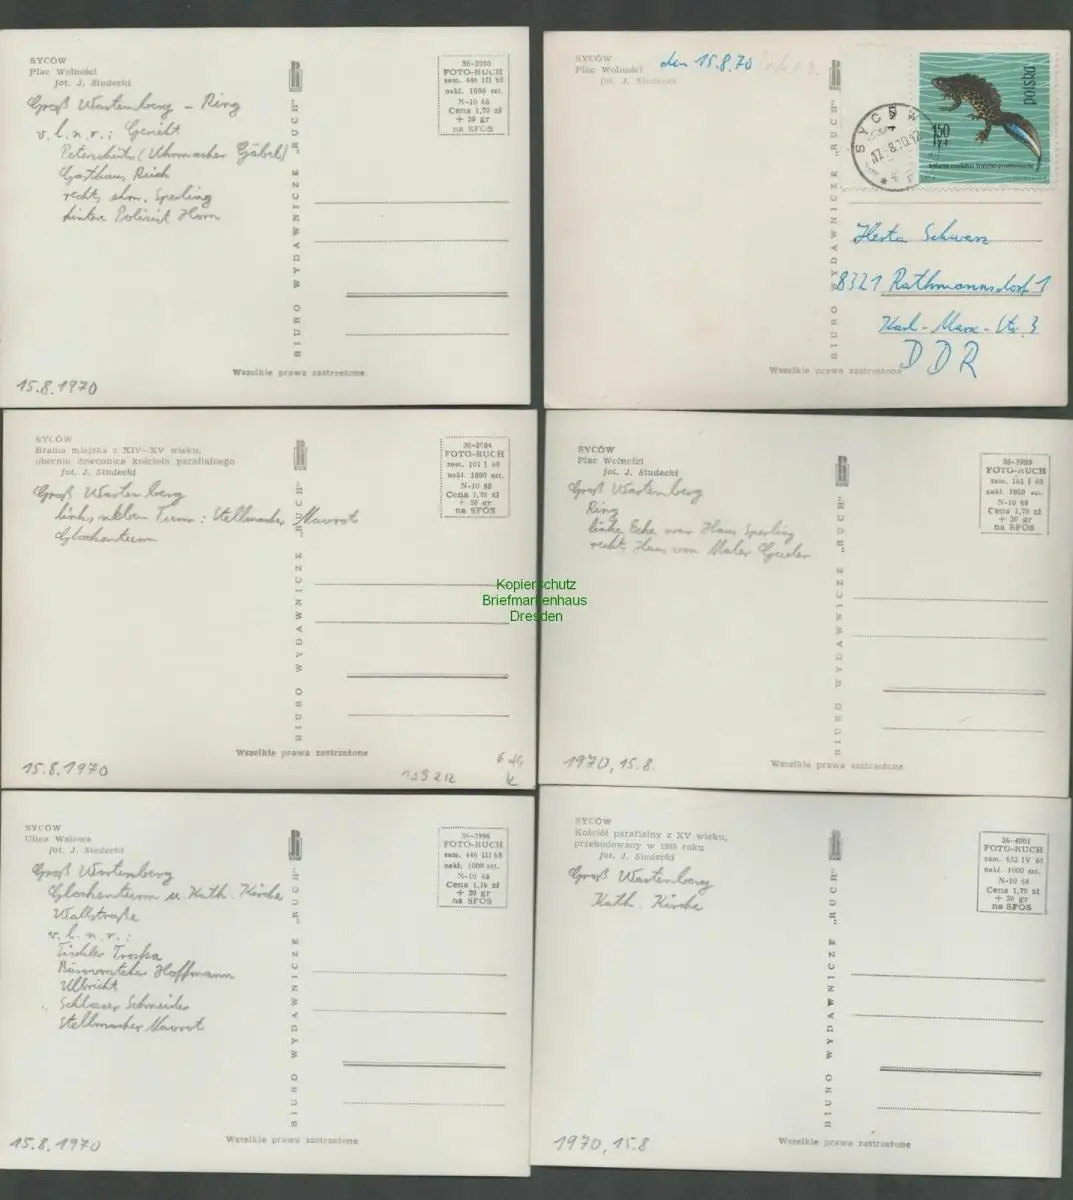 SYCÓW
Plac Wolności
fot. J. Siudecki
36-3980
FOTO-RUCH
zam. 446 III 68
nakl. 1000 szt.
N-10 68
Cena 1,70 zł
+ 20 gr
na SFOS
Groß Wartenberg - Ring
v. l. n. r.: Gericht
(Uhrmacher Göbel)
Gasthaus Reich
rechts ehm. Sperling
hinten Polizist Horn
BIURO WYDAWNICZE „RUCH"
Wszelkie prawa zastrzeżone
15.8.1970
SYCÓW
Plac Wolności
fot. J. Siudecki
den 15.8.70
polska
1,50 zł
SYCÓW
Herta Schwarz
8321 Rathmannsdorf 1
Karl-Marx-Str. 3
DDR
BIURO WYDAWNICZE „RUCH"
Wszelkie prawa zastrzeżone
SYCÓW
Brama miejska z XIV—XV wieku,
obecnie dzwonnica kościoła parafialnego
fot. J. Siudecki
FOTO-RUCH
zam. 101 I 69
nakl. 1000 szt.
N-10 68
Cena 1,70 zł
+ 20 gr
na SFOS
Groß Wartenberg
links neben Turm: Stellmacher Mawrot
Glockenturm
BIURO WYDAWNICZE „RUCH"
Wszelkie prawa zastrzeżone
15.8.1970
SYCÓW
Plac Wolności
fot. J. Siudecki
FOTO-RUCH
zam. 101 I 69
nakl. 1000 szt.
N-10 68
Cena 1,70 zł
+ 20 gr
na SFOS
Groß Wartenberg
Ring
linke Ecke war Haus Sperling
rechts Haus von Maler
BIURO WYDAWNICZE „RUCH"
Wszelkie prawa zastrzeżone
1970, 15.8.
Kopierschutz
Briefmarkenhaus
Dresden
SYCÓW
Ulica Wałowa
fot. J. Siudecki
36-3996
FOTO-RUCH
zam. 446 III 68
nakl. 1000 szt.
N-10 68
Cena 1,70 zł
+ 20 gr
na SFOS
Groß Wartenberg
Glockenturm u. Kath. Kirche
Wallstraße
v. l. n. r.:
Tischler Troska
Bürovorsteher Hoffmann
Ulbricht
Schlosser Schneider
Stellmacher Mawrot
BIURO WYDAWNICZE „RUCH"
Wszelkie prawa zastrzeżone
15.8.1970
SYCÓW
Kościół parafialny z XV wieku,
przebudowany w 1905 roku
fot. J. Siudecki
36-4001
FOTO-RUCH
nakl. 1000 szt.
N-10 68
Cena 1,70 zł
+ 20 gr
na SFOS
Groß Wartenberg
Kath. Kirche
BIURO WYDAWNICZE „RUCH"
Wszelkie prawa zastrzeżone
1970, 15.8